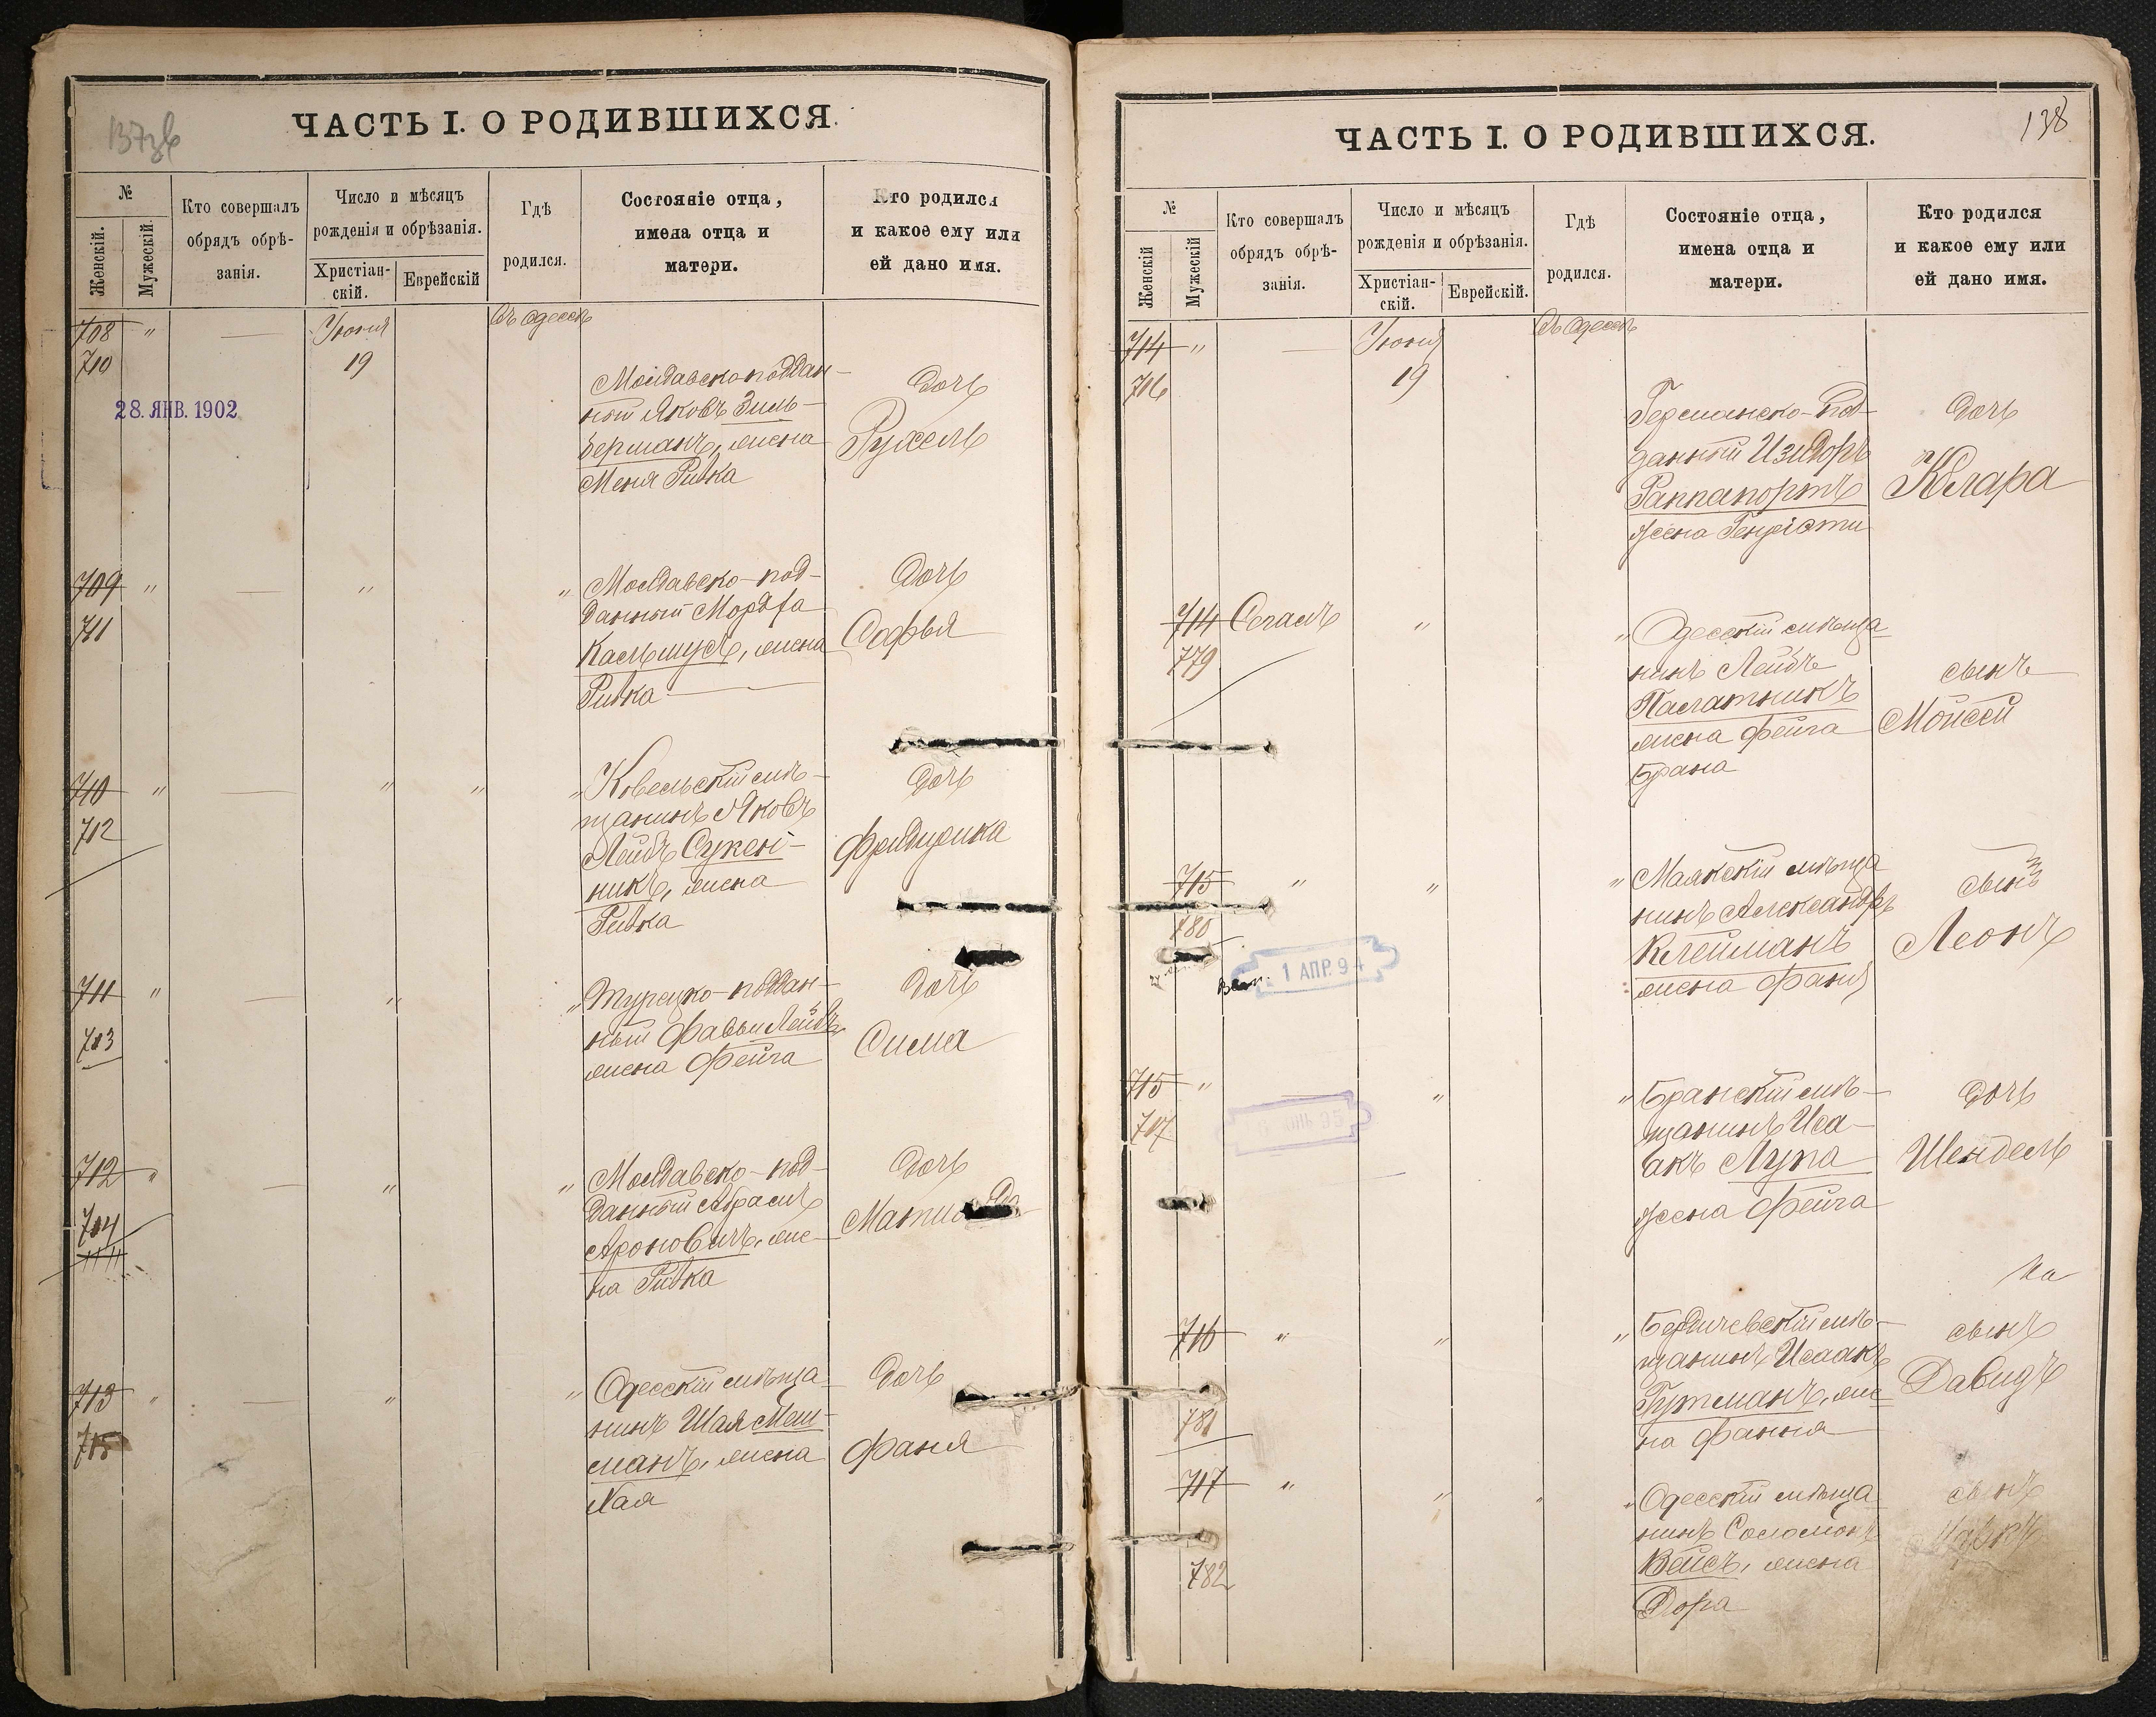 137об
ЧАСТЬ I. О РОДИВШИХСЯ.
№
Женскій.
Мужескій.
Кто совершалъ
обрядъ обрѣ-
занія.
Число и мѣсяцъ
рожденія и обрѣзанія.
Христіан-
скій.
Еврейскій
Гдѣ
родился.
Состояніе отца,
имена отца и
матери.
Кто родился
и какое ему или
ей дано имя.
708 " — Іюня Въ Одессѣ
710 19
28. ЯНВ. 1902
Молдавскоподдан-
ный Яковъ Зиль-
берманъ, жена
Меня Ривка
Дочь
Рухель
709 " — " "
711
Молдавско-под-
данный Мордха
Кальмусъ, жена
Ривка
Дочь
Софья
710 " — " " "
712
Ковельскій мѣ-
щанинъ Яковъ
Лейбъ Сукен-
никъ, жена
Ривка
Дочь
711 " — " "
713
Турецко-поддан-
ный Лейбъ
жена Фейга
Дочь
Сима
712 " — " "
714
Молдавско-под-
данный Абрамъ
Ароновичъ, же-
на Ривка
Дочь
713 " — " "
715
Одесскій мѣща
нинъ Шая Меш-
манъ, жена
Хая
Дочь
Фаня
138
ЧАСТЬ I. О РОДИВШИХСЯ.
№
Женскій
Мужескій
Кто совершалъ
обрядъ обрѣ-
занія.
Число и мѣсяцъ
рожденія и обрѣзанія.
Христіан-
скій.
Еврейскій.
Гдѣ
родился.
Состояніе отца,
имена отца и
матери.
Кто родился
и какое ему или
ей дано имя.
714 " — Іюня Въ Одессѣ
716 19
Германско-под-
данный Изидоръ
Раппапортъ
жена
Дочь
Клара
714 Сегалъ " "
779
Одесскій мѣща
нинъ Лейбъ
Палатникъ
жена Фейга
Брана
сынъ
Мойсей
715 " " "
780
1 АПР. 94
Маякскій мѣща
нинъ Александръ
Клейманъ
жена Фаня
сынъ
Леонъ
715 " — " "
717
Бранскій мѣ-
щанинъ Иса-
акъ Лупа
жена Фейга
Дочь
Шендель
716 " " "
781
Бердичевскій мѣ-
щанинъ Исаакъ
Гутманъ, же-
на Фання
сынъ
Давидъ
717 " " " "
782
Одесскій мѣща
нинъ Соломонъ
Вейсъ, жена
Дора
сынъ